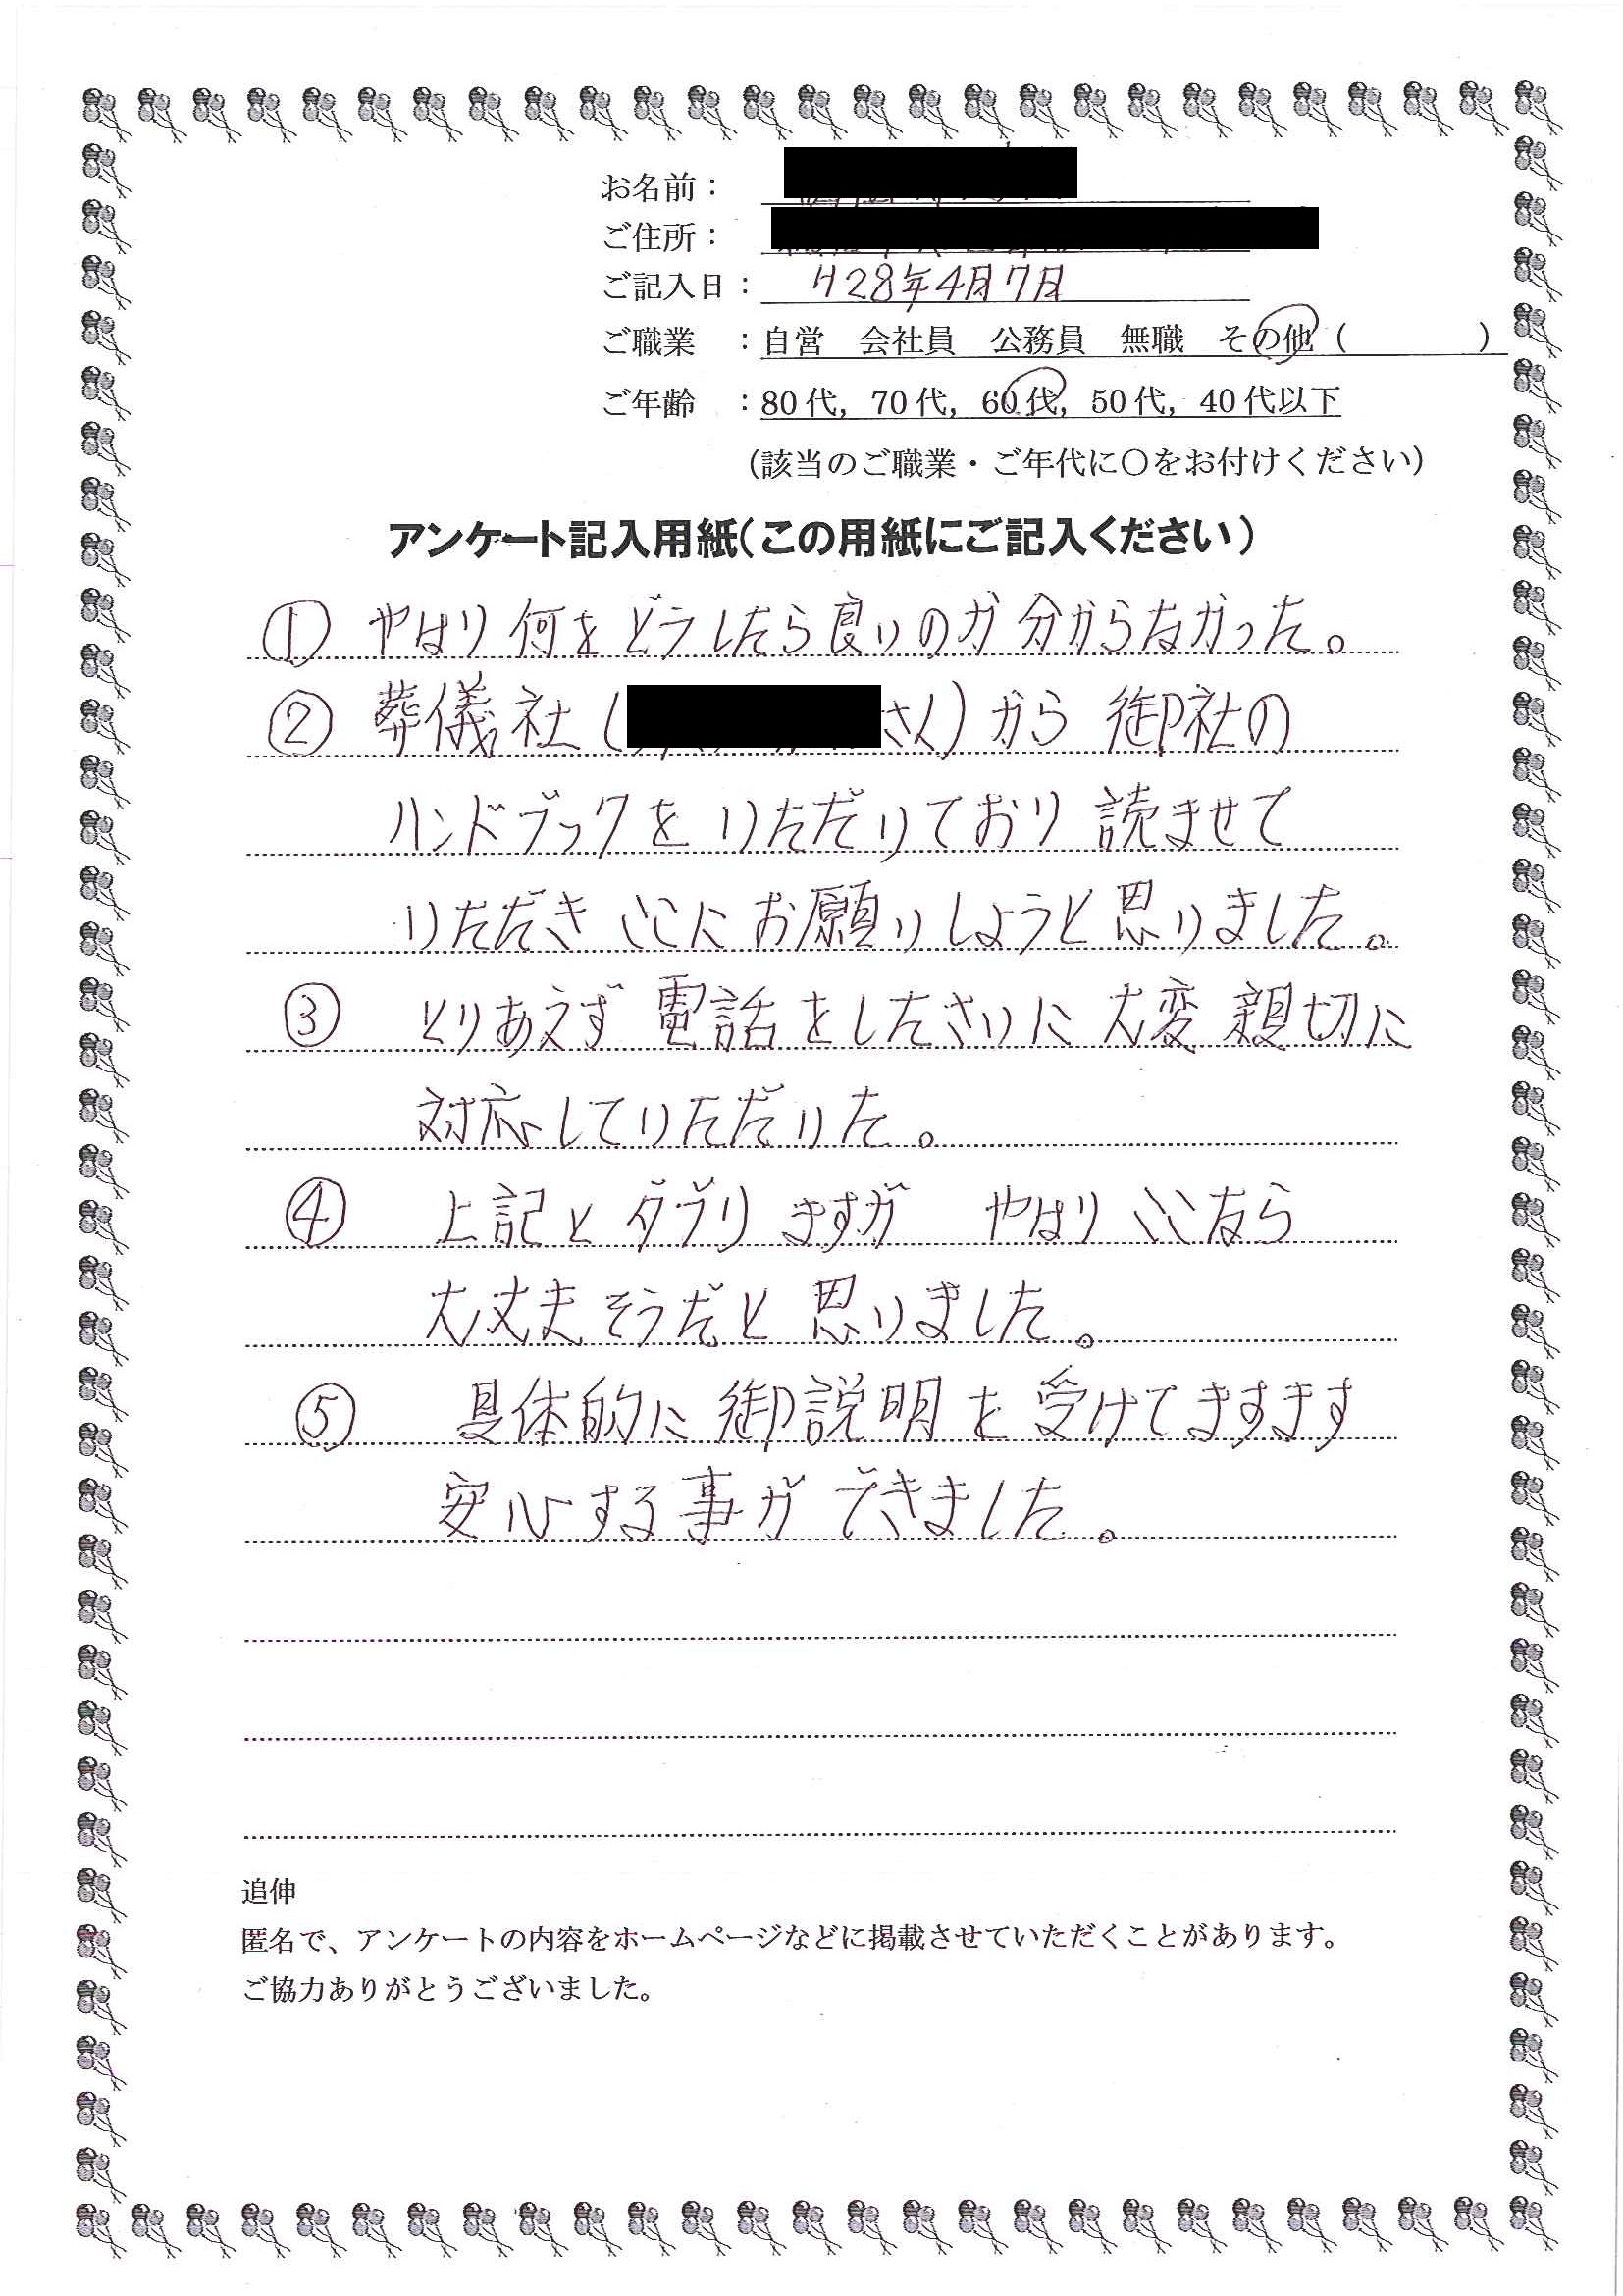 お名前：
ご住所：
ご記入日： H28年4月7日
ご職業 ：自営 会社員 公務員 無職 その他（ ）
ご年齢 ：80代，70代，60代，50代，40代以下
（該当のご職業・ご年代に〇をお付けください）
アンケート記入用紙（この用紙にご記入ください）
① やはり何をどうしたら良いのか分からなかった。
② 葬儀社（ さん）から御社の
ハンドブックをいただいており読ませて
いただきここにお願いしようと思いました。
③ とりあえず電話をしたさいに大変親切に
対応していただいた。
④ 上記とダブりますが やはりここなら
大丈夫そうだと思いました。
⑤ 具体的に御説明を受けてますます
安心する事ができました。
追伸
匿名で、アンケートの内容をホームページなどに掲載させていただくことがあります。
ご協力ありがとうございました。